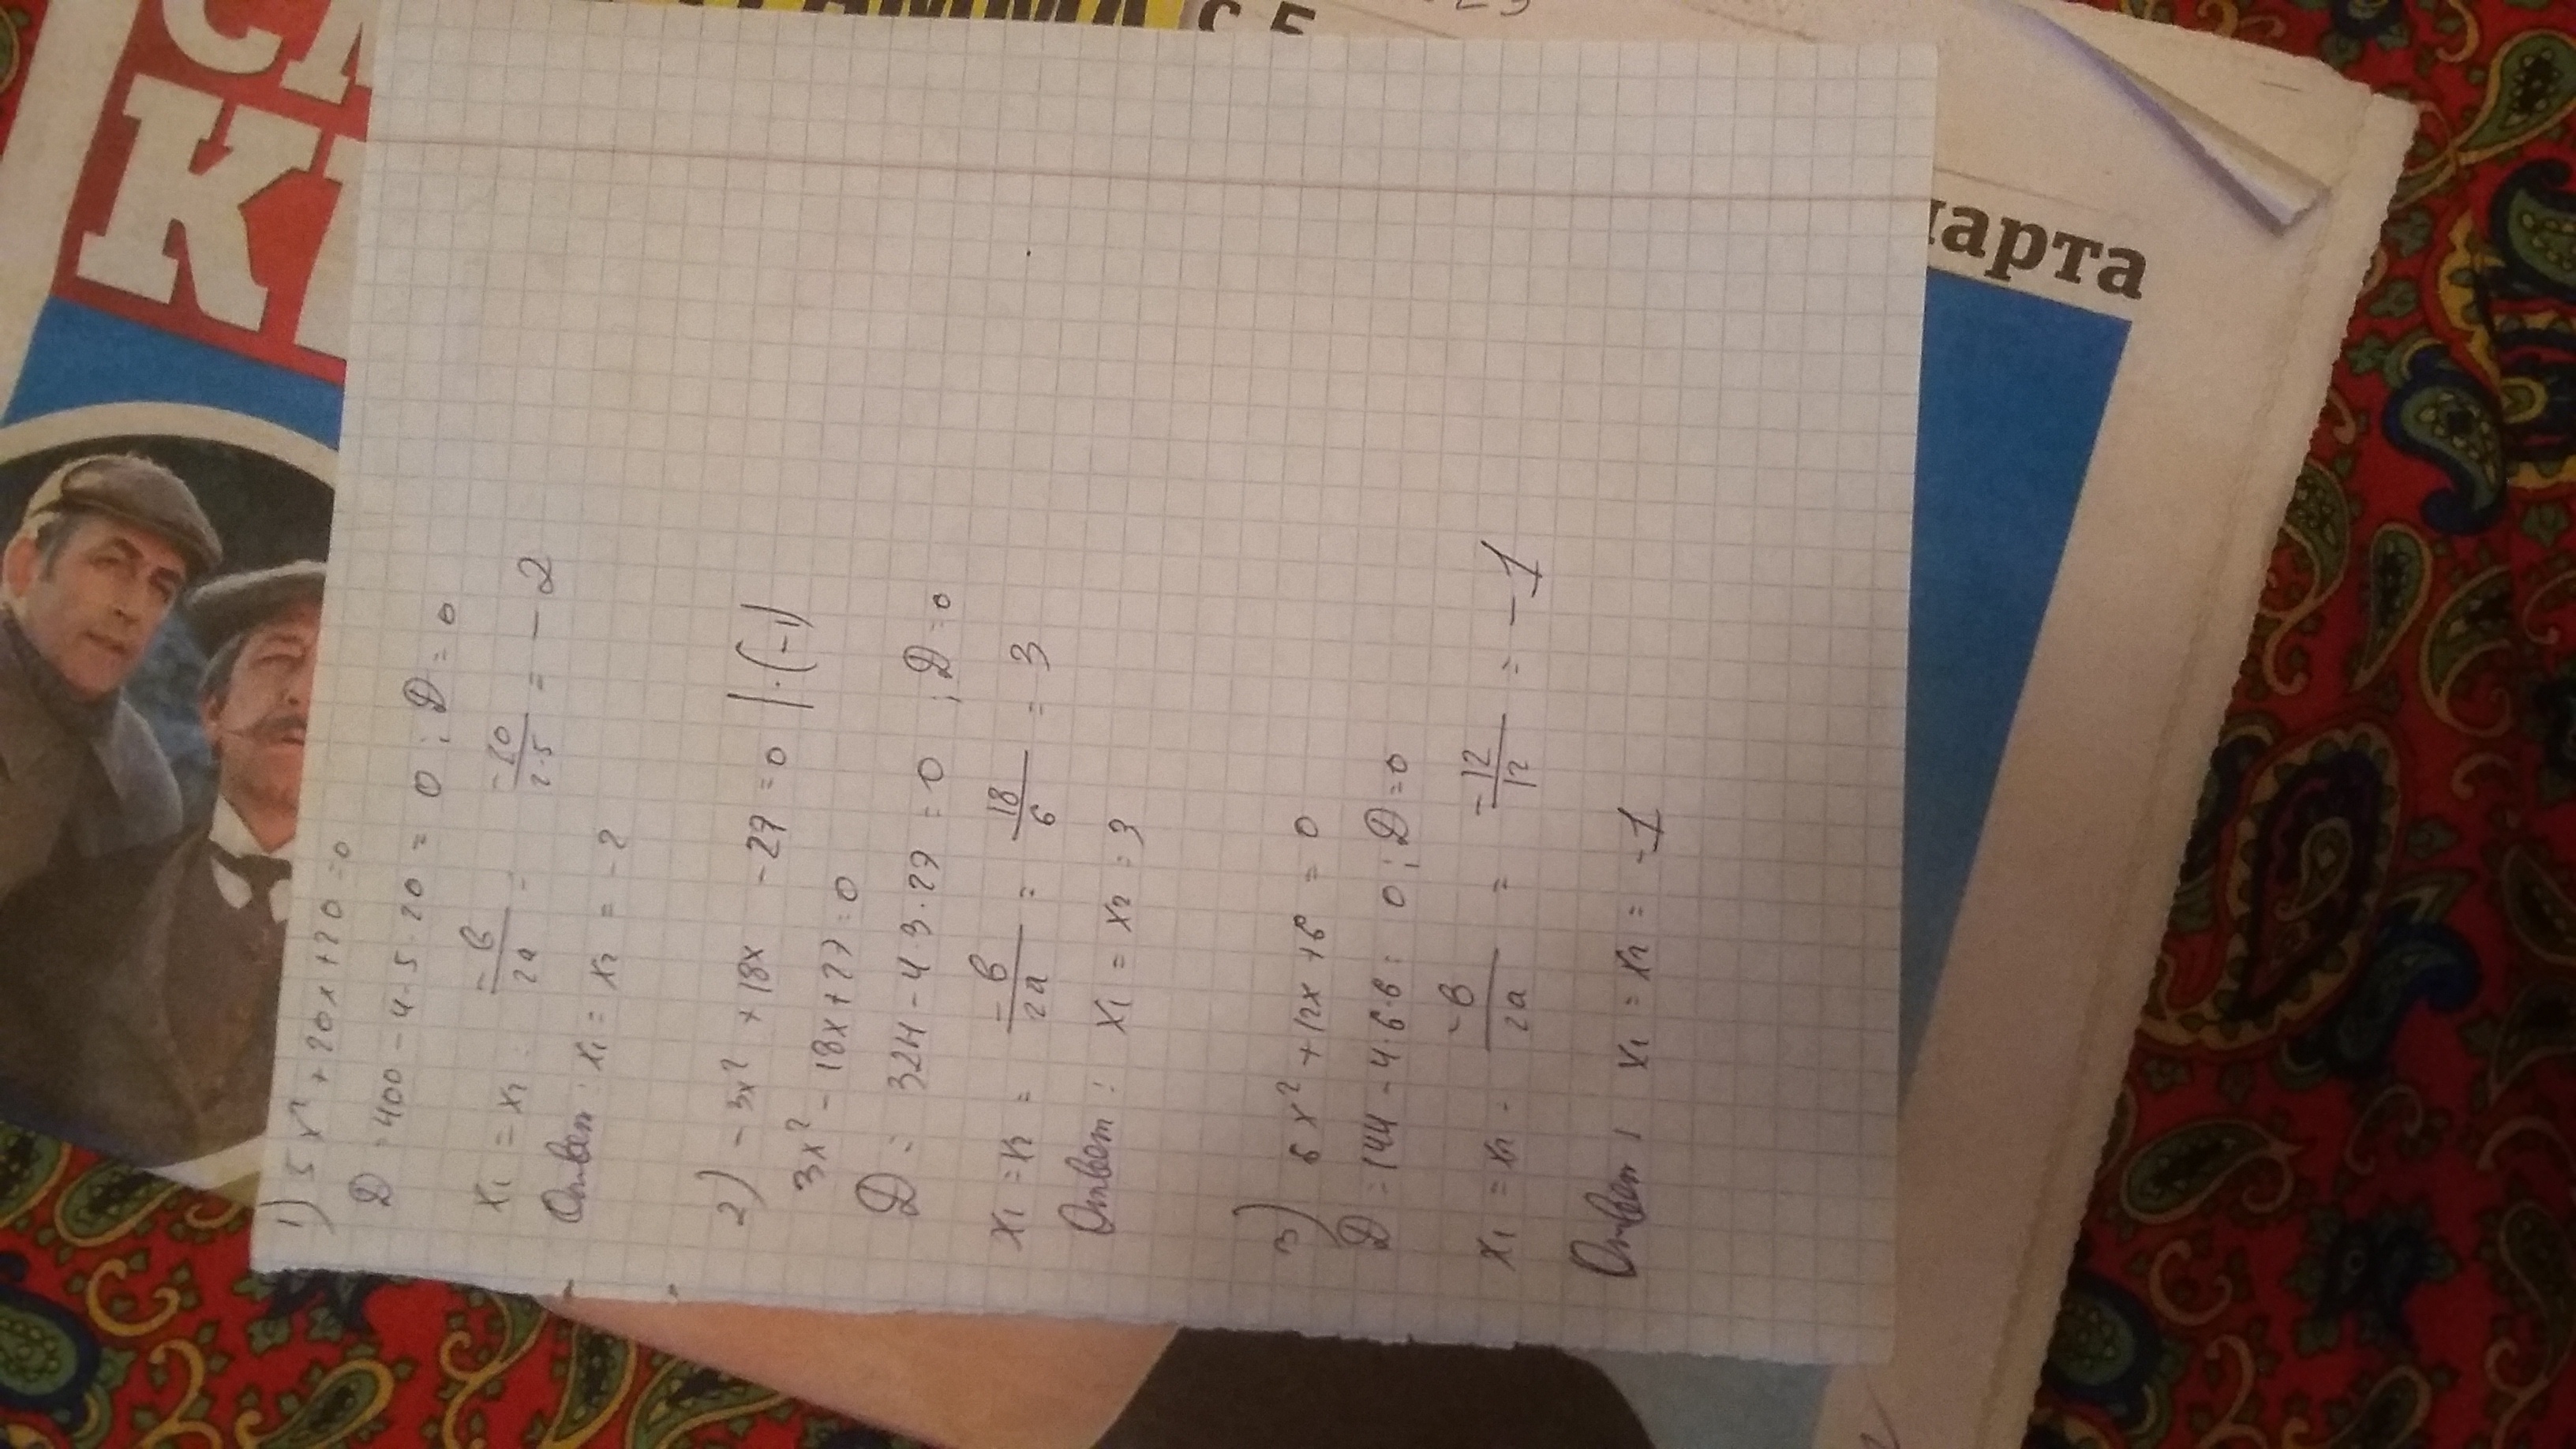 1) 5x² + 20x + 20 = 0
D = 400 - 4·5·20 = 0 ; D = 0
x₁ = x₂ = -в/2a = -20/2·5 = -2
Ответ: x₁ = x₂ = -2
2) -3x² + 18x - 27 = 0 |·(-1)
3x² - 18x + 27 = 0
D = 324 - 4·3·27 = 0 ; D = 0
x₁ = x₂ = -в/2a = 18/6 = 3
Ответ: x₁ = x₂ = 3
3) 6x² + 12x + 6 = 0
D = 144 - 4·6·6 = 0 ; D = 0
x₁ = x₂ = -в/2a = -12/12 = -1
Ответ: x₁ = x₂ = -1
марта